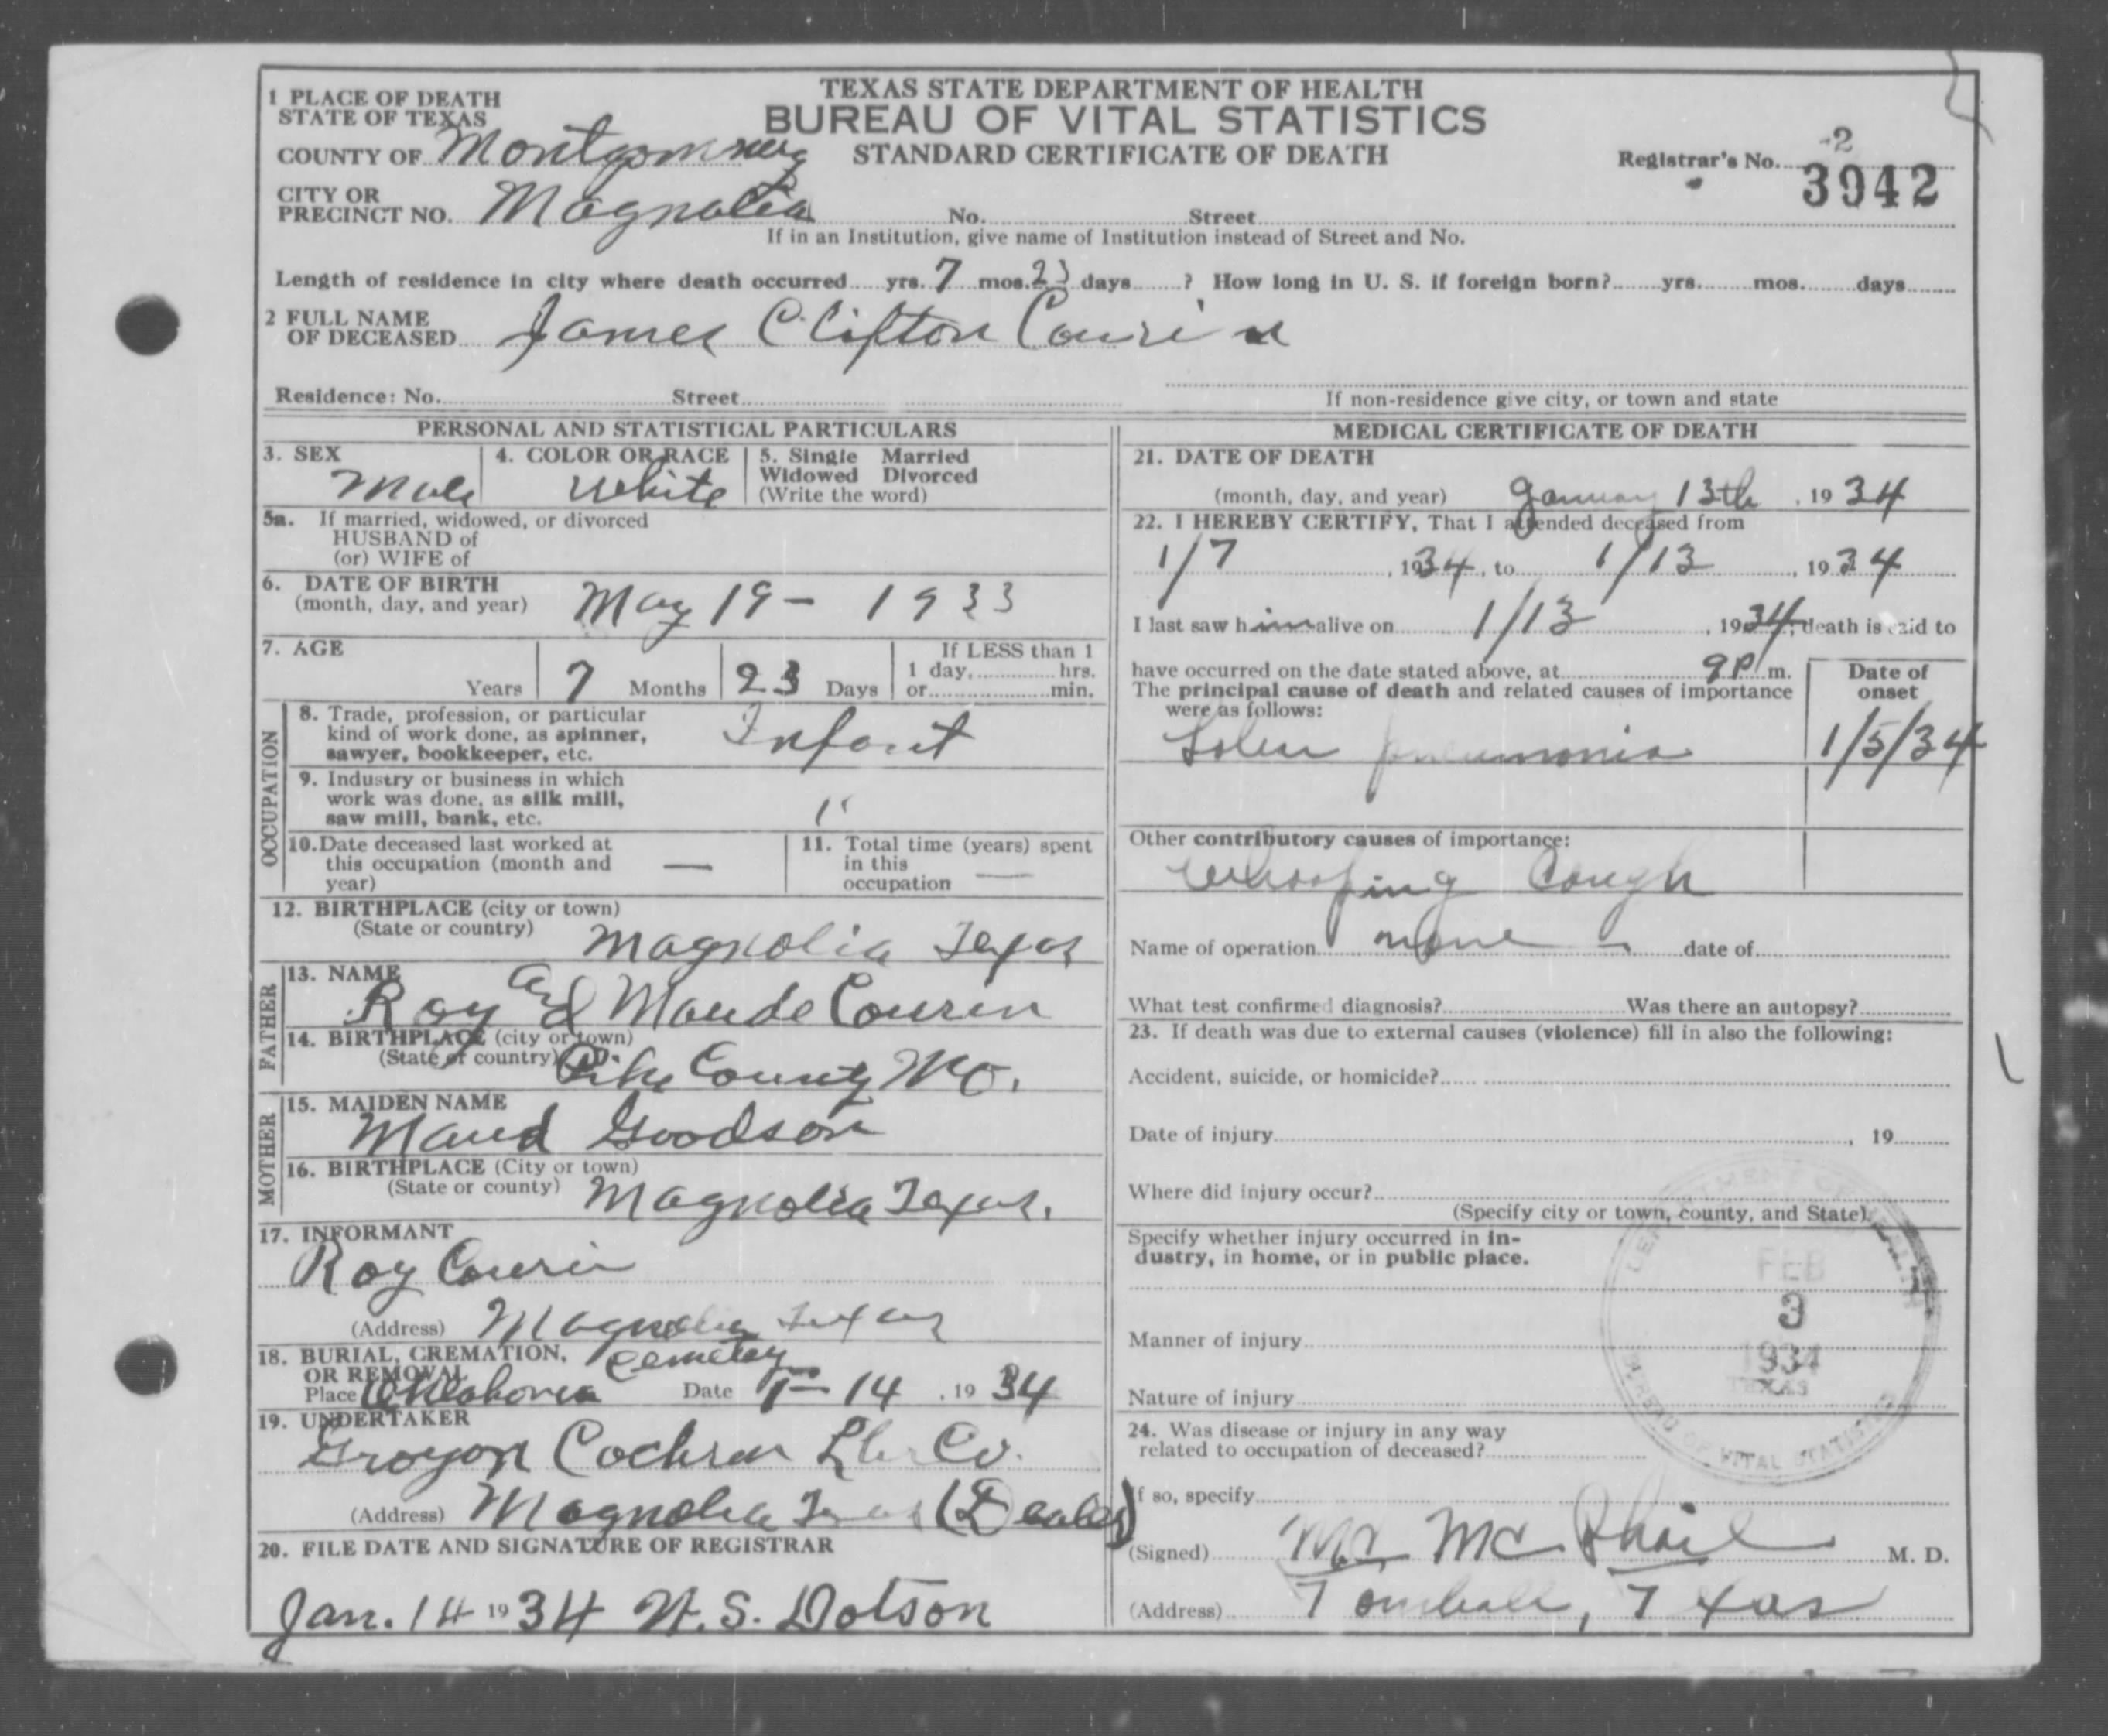 TEXAS STATE DEPARTMENT OF HEALTH
BUREAU OF VITAL STATISTICS
STANDARD CERTIFICATE OF DEATH
1 PLACE OF DEATH
STATE OF TEXAS
COUNTY OF Montgomery
Registrar's No. 2
3942
CITY OR
PRECINCT NO. Magnolia No. Street
If in an Institution, give name of Institution instead of Street and No.
Length of residence in city where death occurred yrs. 7 mos. 23 days ? How long in U. S. if foreign born? yrs. mos. days
2 FULL NAME
OF DECEASED James Clifton Courin
Residence: No. Street
If non-residence give city, or town and state
PERSONAL AND STATISTICAL PARTICULARS
3. SEX
Male
4. COLOR OR RACE
White
5. Single Married
Widowed Divorced
(Write the word)
5a. If married, widowed, or divorced
HUSBAND of
(or) WIFE of
6. DATE OF BIRTH
(month, day, and year) May 19 - 1933
7. AGE
Years 7 Months 23 Days
If LESS than 1
1 day, hrs.
or min.
OCCUPATION
8. Trade, profession, or particular
kind of work done, as spinner,
sawyer, bookkeeper, etc. Infant
9. Industry or business in which
work was done, as silk mill,
saw mill, bank, etc. "
10. Date deceased last worked at
this occupation (month and
year) —
11. Total time (years) spent
in this
occupation —
12. BIRTHPLACE (city or town)
(State or country) Magnolia Texas
FATHER
13. NAME
Roy and Maude Courin
14. BIRTHPLACE (city or town)
(State or country) Pike County Mo.
MOTHER
15. MAIDEN NAME
Maud Goodson
16. BIRTHPLACE (City or town)
(State or county) Magnolia Texas.
17. INFORMANT
Roy Courin
(Address) Magnolia Texas
18. BURIAL, CREMATION,
OR REMOVAL Cemetey
Place Oklahoma Date 1-14, 1934
19. UNDERTAKER
Grogon Cochran Lbr Co.
(Address) Magnolia Texas (Dealer)
20. FILE DATE AND SIGNATURE OF REGISTRAR
Jan. 14 1934 H. S. Dotson
MEDICAL CERTIFICATE OF DEATH
21. DATE OF DEATH
(month, day, and year) January 13th, 1934
22. I HEREBY CERTIFY, That I attended deceased from
1/7, 1934, to 1/13, 1934
I last saw him alive on 1/13, 1934, death is said to
have occurred on the date stated above, at 9P m.
The principal cause of death and related causes of importance
were as follows:
Date of
onset
pneumonia 1/5/34
Other contributory causes of importance:
Whooping Cough
Name of operation none date of
What test confirmed diagnosis? Was there an autopsy?
23. If death was due to external causes (violence) fill in also the following:
Accident, suicide, or homicide?
Date of injury , 19
Where did injury occur?
(Specify city or town, county, and State)
Specify whether injury occurred in industry, in home, or in public place.
Manner of injury
Nature of injury
24. Was disease or injury in any way
related to occupation of deceased?
If so, specify
(Signed) McPhail M. D.
(Address) Tomball, Texas
DEPARTMENT OF HEALTH
FEB
3
1934
TEXAS
BUREAU OF VITAL STATISTICS